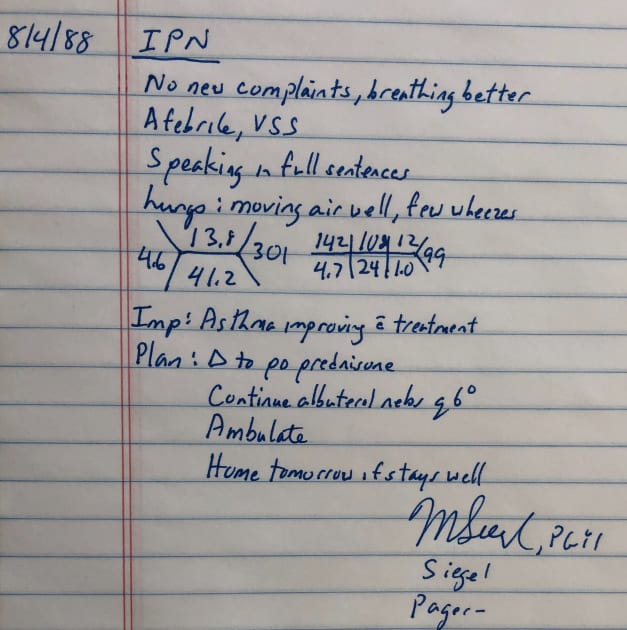 8/4/88 IPN
No new complaints, breathing better
Afebrile, VSS
Speaking in full sentences
Lungs: moving air well, few wheezes
4.6 13.8 41.2 301 142 108 12 99 4.7 24 1.0
Imp: Asthma improving c̄ treatment
Plan: Δ to po prednisone
Continue albuterol nebs q6°
Ambulate
Home tomorrow if stays well
MSiegel, PGY1
Siegel
Pager-